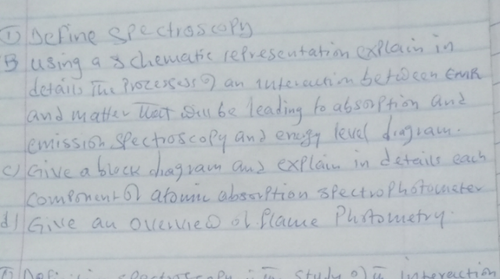 ① Define Spectroscopy
B using a schematic representation explain in
details The Processes of an interaction between EMR
and matter that will be leading to absorption and
emission spectroscopy and energy level diagram.
c) Give a block diagram and explain in details each
Component of atomic absorption spectrophotometer
d) Give an overview of flame Photometry.
spectroscopy is study of interaction